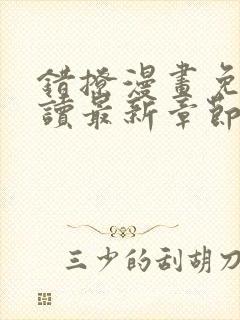 錯撩漫畫免
讀最新章節
三少的刮胡刀